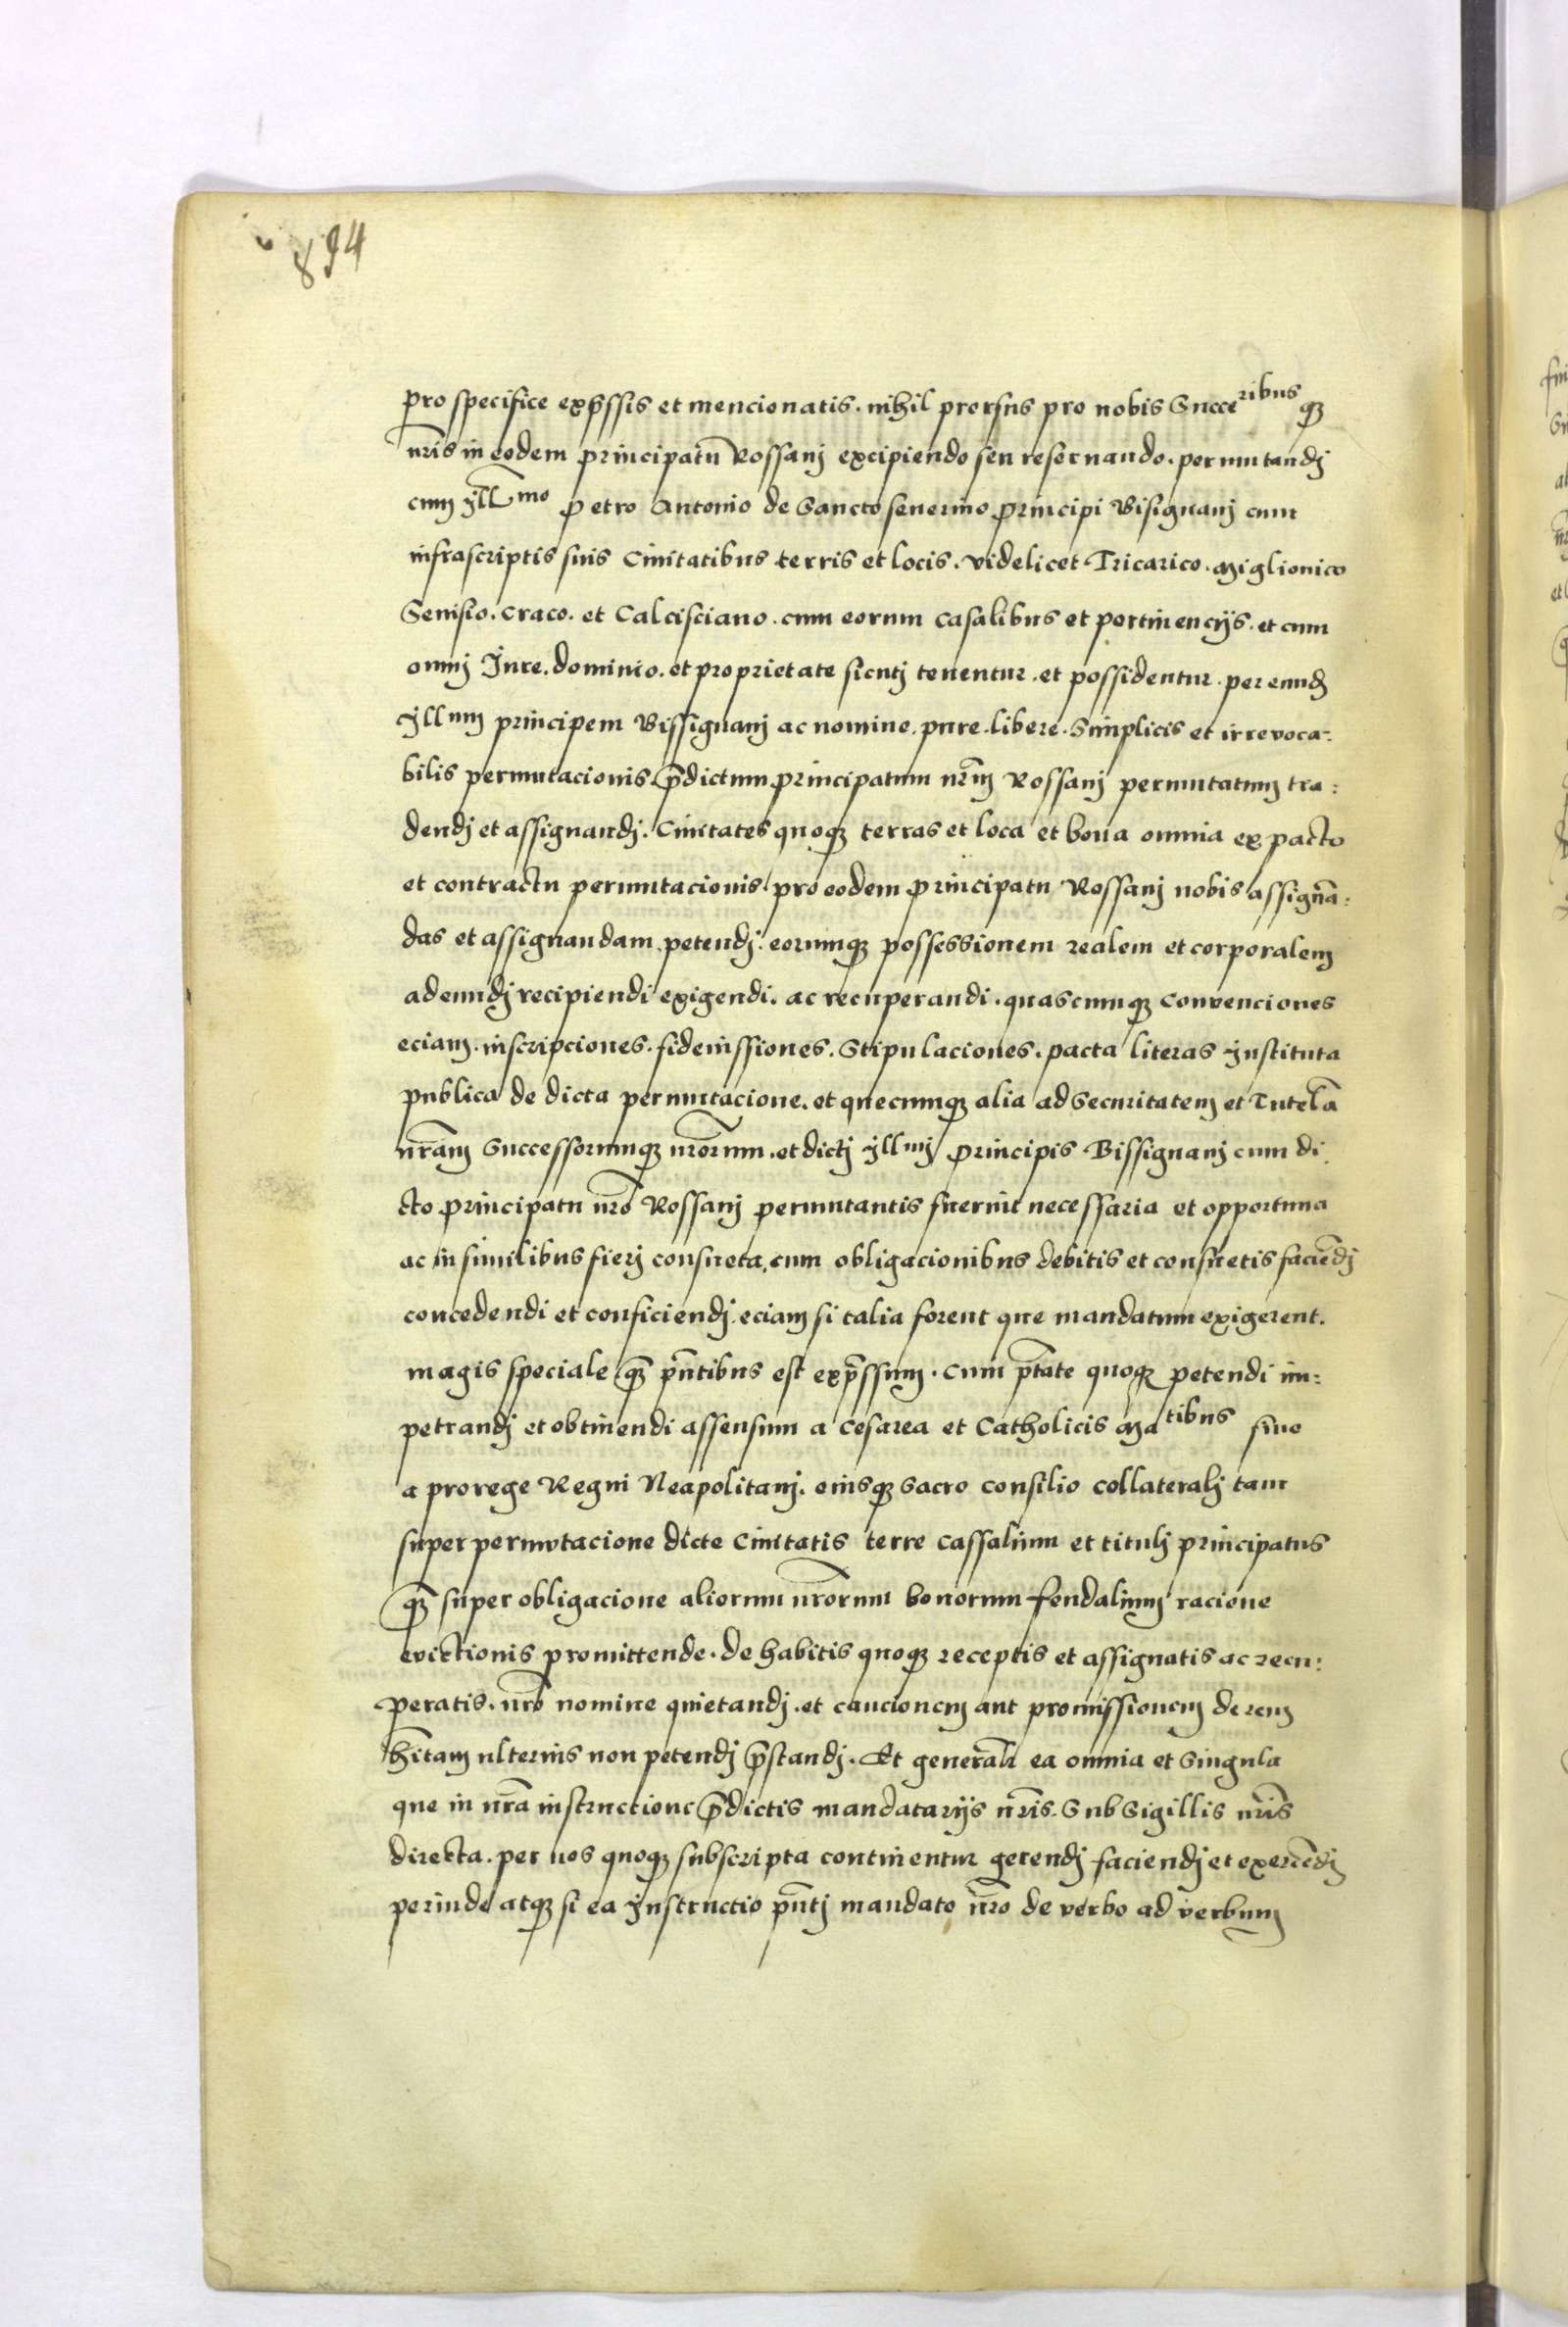 894
pro specifice exp̄ssis et mencionatis. nihil prorsus pro nobis Succeribusq3
nr̄is in eodem principatu Rossanj excipiendo seu reseruando. permutandj
cum yllmo Petro Antonio de Sancto seuerino Principi Bisignanj cum
infrascriptis suis Ciuitatibus terris et locis. videlicet Tricarico. Miglionico
Senisio. Craco. et Calcisciano. cum eorum casalibus et pertinencijs. et cum
omnj Jure. dominio. et proprietate sicutj tenentur. et possidentur. per eundē
yllum principem Bissignanj ac nomine. pure. libere. Simplicis et irreuoca:
bilis permutacionis p̄dictum principatum nr̄m Rossanj permutatum tra:
dendj et assignandj. Ciuitates quoq3 terras et loca et bona omnia ex pacto
et contractu permutacionis pro eodem principatu Rossanj nobis assignā:
das et assignandam. petendj. eorumq3 possessionem realem et corporalem
adeundj recipiendi exigendi. ac recuperandi. quascumq3 conuenciones
eciam. inscripciones. fideiussiones. Stipulaciones. pacta literas ynstituta
publica de dicta permutacione. et quecumq3 alia ad Securitatem et Tutelā
nr̄am Successorumq3 nr̄orum. et dictj yllmj Principis Bissignanj cum di
cto principatu nr̄o Rossanj permutantis fuerint necessaria et opportuna
ac in similibus fierj consueta, cum obligacionibus debitis et consuetis faciēdj
concedendi et conficiendj. eciam si talia forent que mandatum exigerent.
magis speciale q3 pn̄tibus est exp̄ssum. cum ptāte quoq3 petendi im:
petrandj et obtinendi assensum a Cesarea et Catholicis Matibus siue
a prorege Regni Neapolitanj. eiusq3 Sacro consilio collateralj tam
super permutacione dicte Ciuitatis terre cassalium et titulj principatus
q3 super obligacione aliorum nr̄orum bonorum feudalium racione
euictionis promittende. de habitis quoq3 receptis et assignatis ac recu:
peratis. nr̄o nomine quietandj. et caucionem aut promissionem de rem
hītam ulterius non petendj p̄standj. Et generalr̄ ea omnia et Singula
que in nr̄a instructione p̄dictis mandatarijs nr̄is. Sub Sigillis nr̄is
directa. per nos quoq3 subscripta continentur gerendj faciendj et exercēdj
perinde atq3 si ea ynstructio pn̄tj mandato nr̄o de verbo ad verbum